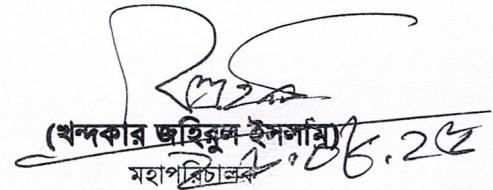 (খন্দকার জহিরুল ইসলাম)
মহাপরিচালক